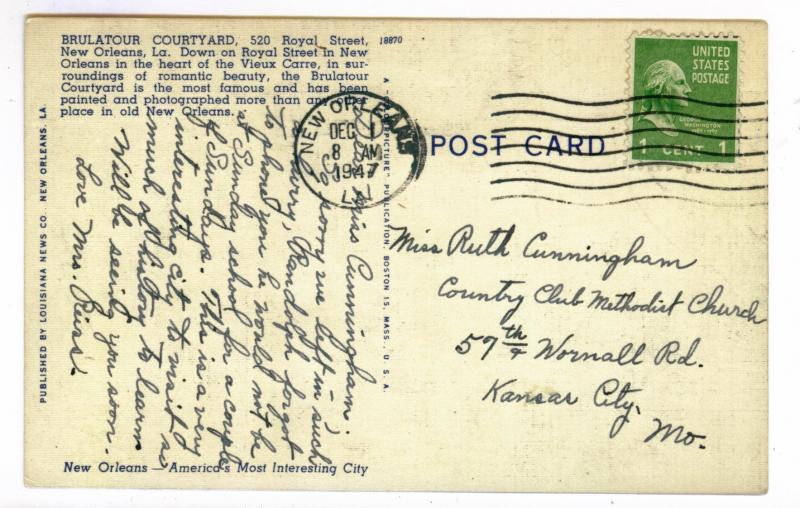 BRULATOUR COURTYARD, 520 Royal Street,
New Orleans, La. Down on Royal Street in New
Orleans in the heart of the Vieux Carre, in sur-
roundings of romantic beauty, the Brulatour
Courtyard is the most famous and has been
painted and photographed more than any other
place in old New Orleans.
18870
PUBLISHED BY LOUISIANA NEWS CO. NEW ORLEANS, LA.
Dear Miss Cunningham:
So sorry we left in such
a hurry, Randolph forgot
to phone you he would not be
at Sunday school for a couple
of Sundays. This is a very
interesting city to visit so
much of history to learn.
Will be seeing you soon.
Love Mrs. Reiss.
New Orleans — America's Most Interesting City
PUBLICATION, BOSTON 15, MASS., U. S. A.
NEW ORLEANS
DEC 1
8 AM
1947
LA
POST CARD
UNITED
STATES
POSTAGE
GEORGE
WASHINGTON
1 CENT 1
Miss Ruth Cunningham
Country Club Methodist Church
57th & Wornall Rd.
Kansas City,
Mo.